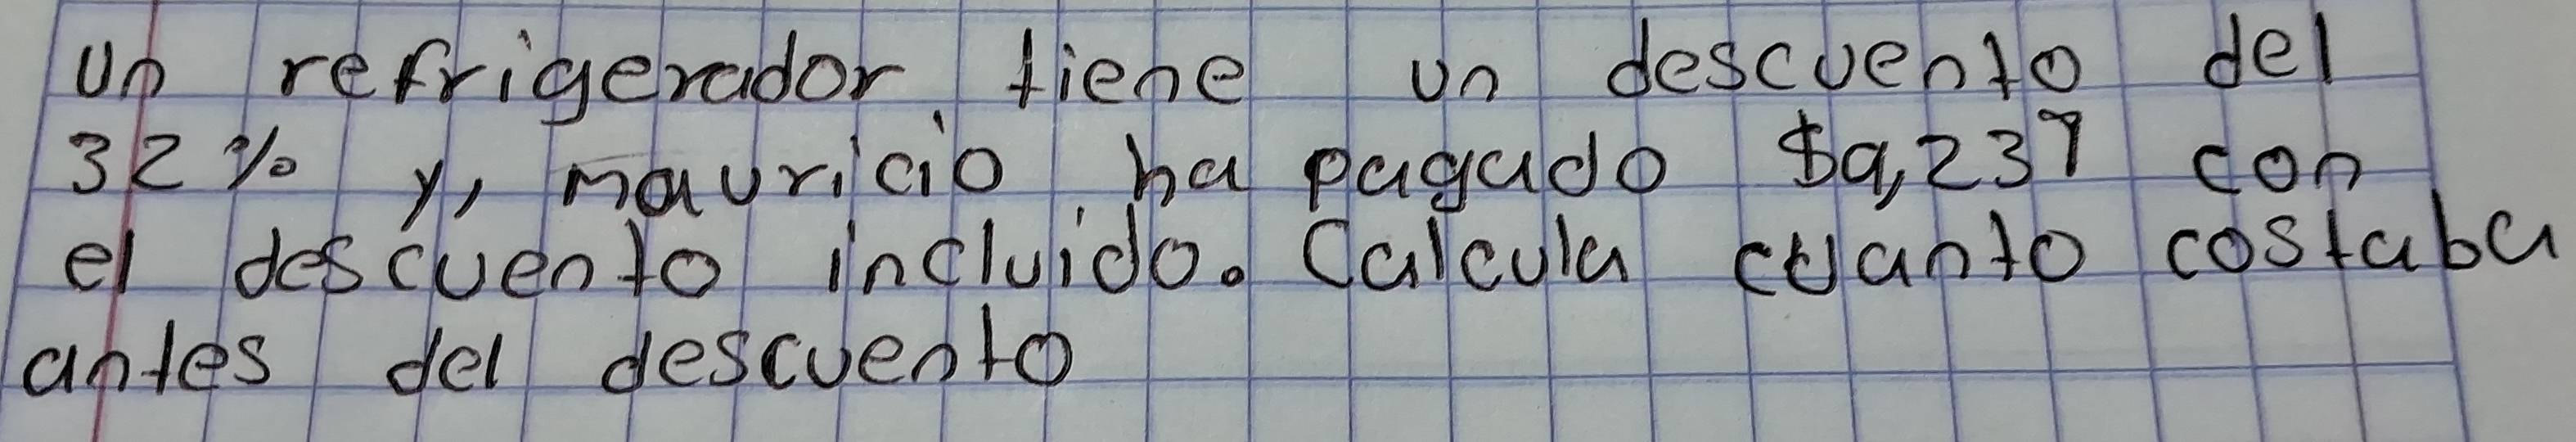 Un refrigerador tiene un descuento del
32% y, mauricio ha pagado $9,237 con
el descuento incluido. Calcula cuanto costaba
antes del descuento